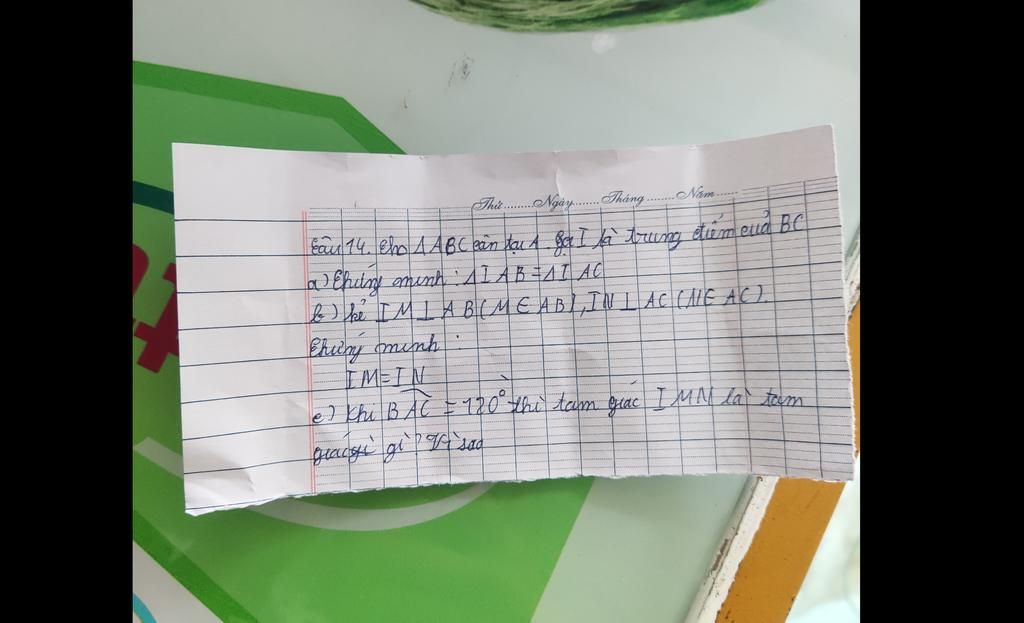 Thứ........Ngày........Tháng........Năm........
Câu 14. Cho ΔABC cân tại A. Gọi I là trung điểm cuả BC
a) Chứng minh: ΔIAB=ΔIAC
b) kẻ IM⊥AB(M∈AB), IN⊥AC(N∈AC).
Chứng minh :
IM=IN
c) Khi BAC = 120° thì tam giác IMN là tam
giác gì? Vì sao